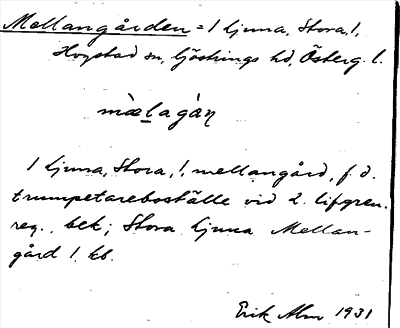 Mellangården = 1 Ljuna, Stora, !,
Hogstad sn, Göstrings hd, Österg. l.
mæ̀lagàṇ
1 Ljuna, Stora, !, mellangård, f. d.
trumpetareboställe vid 2. lifgren.
reg., bek; Stora Ljuna Mellan-
gård 1 kb.
Erik Alm 1931